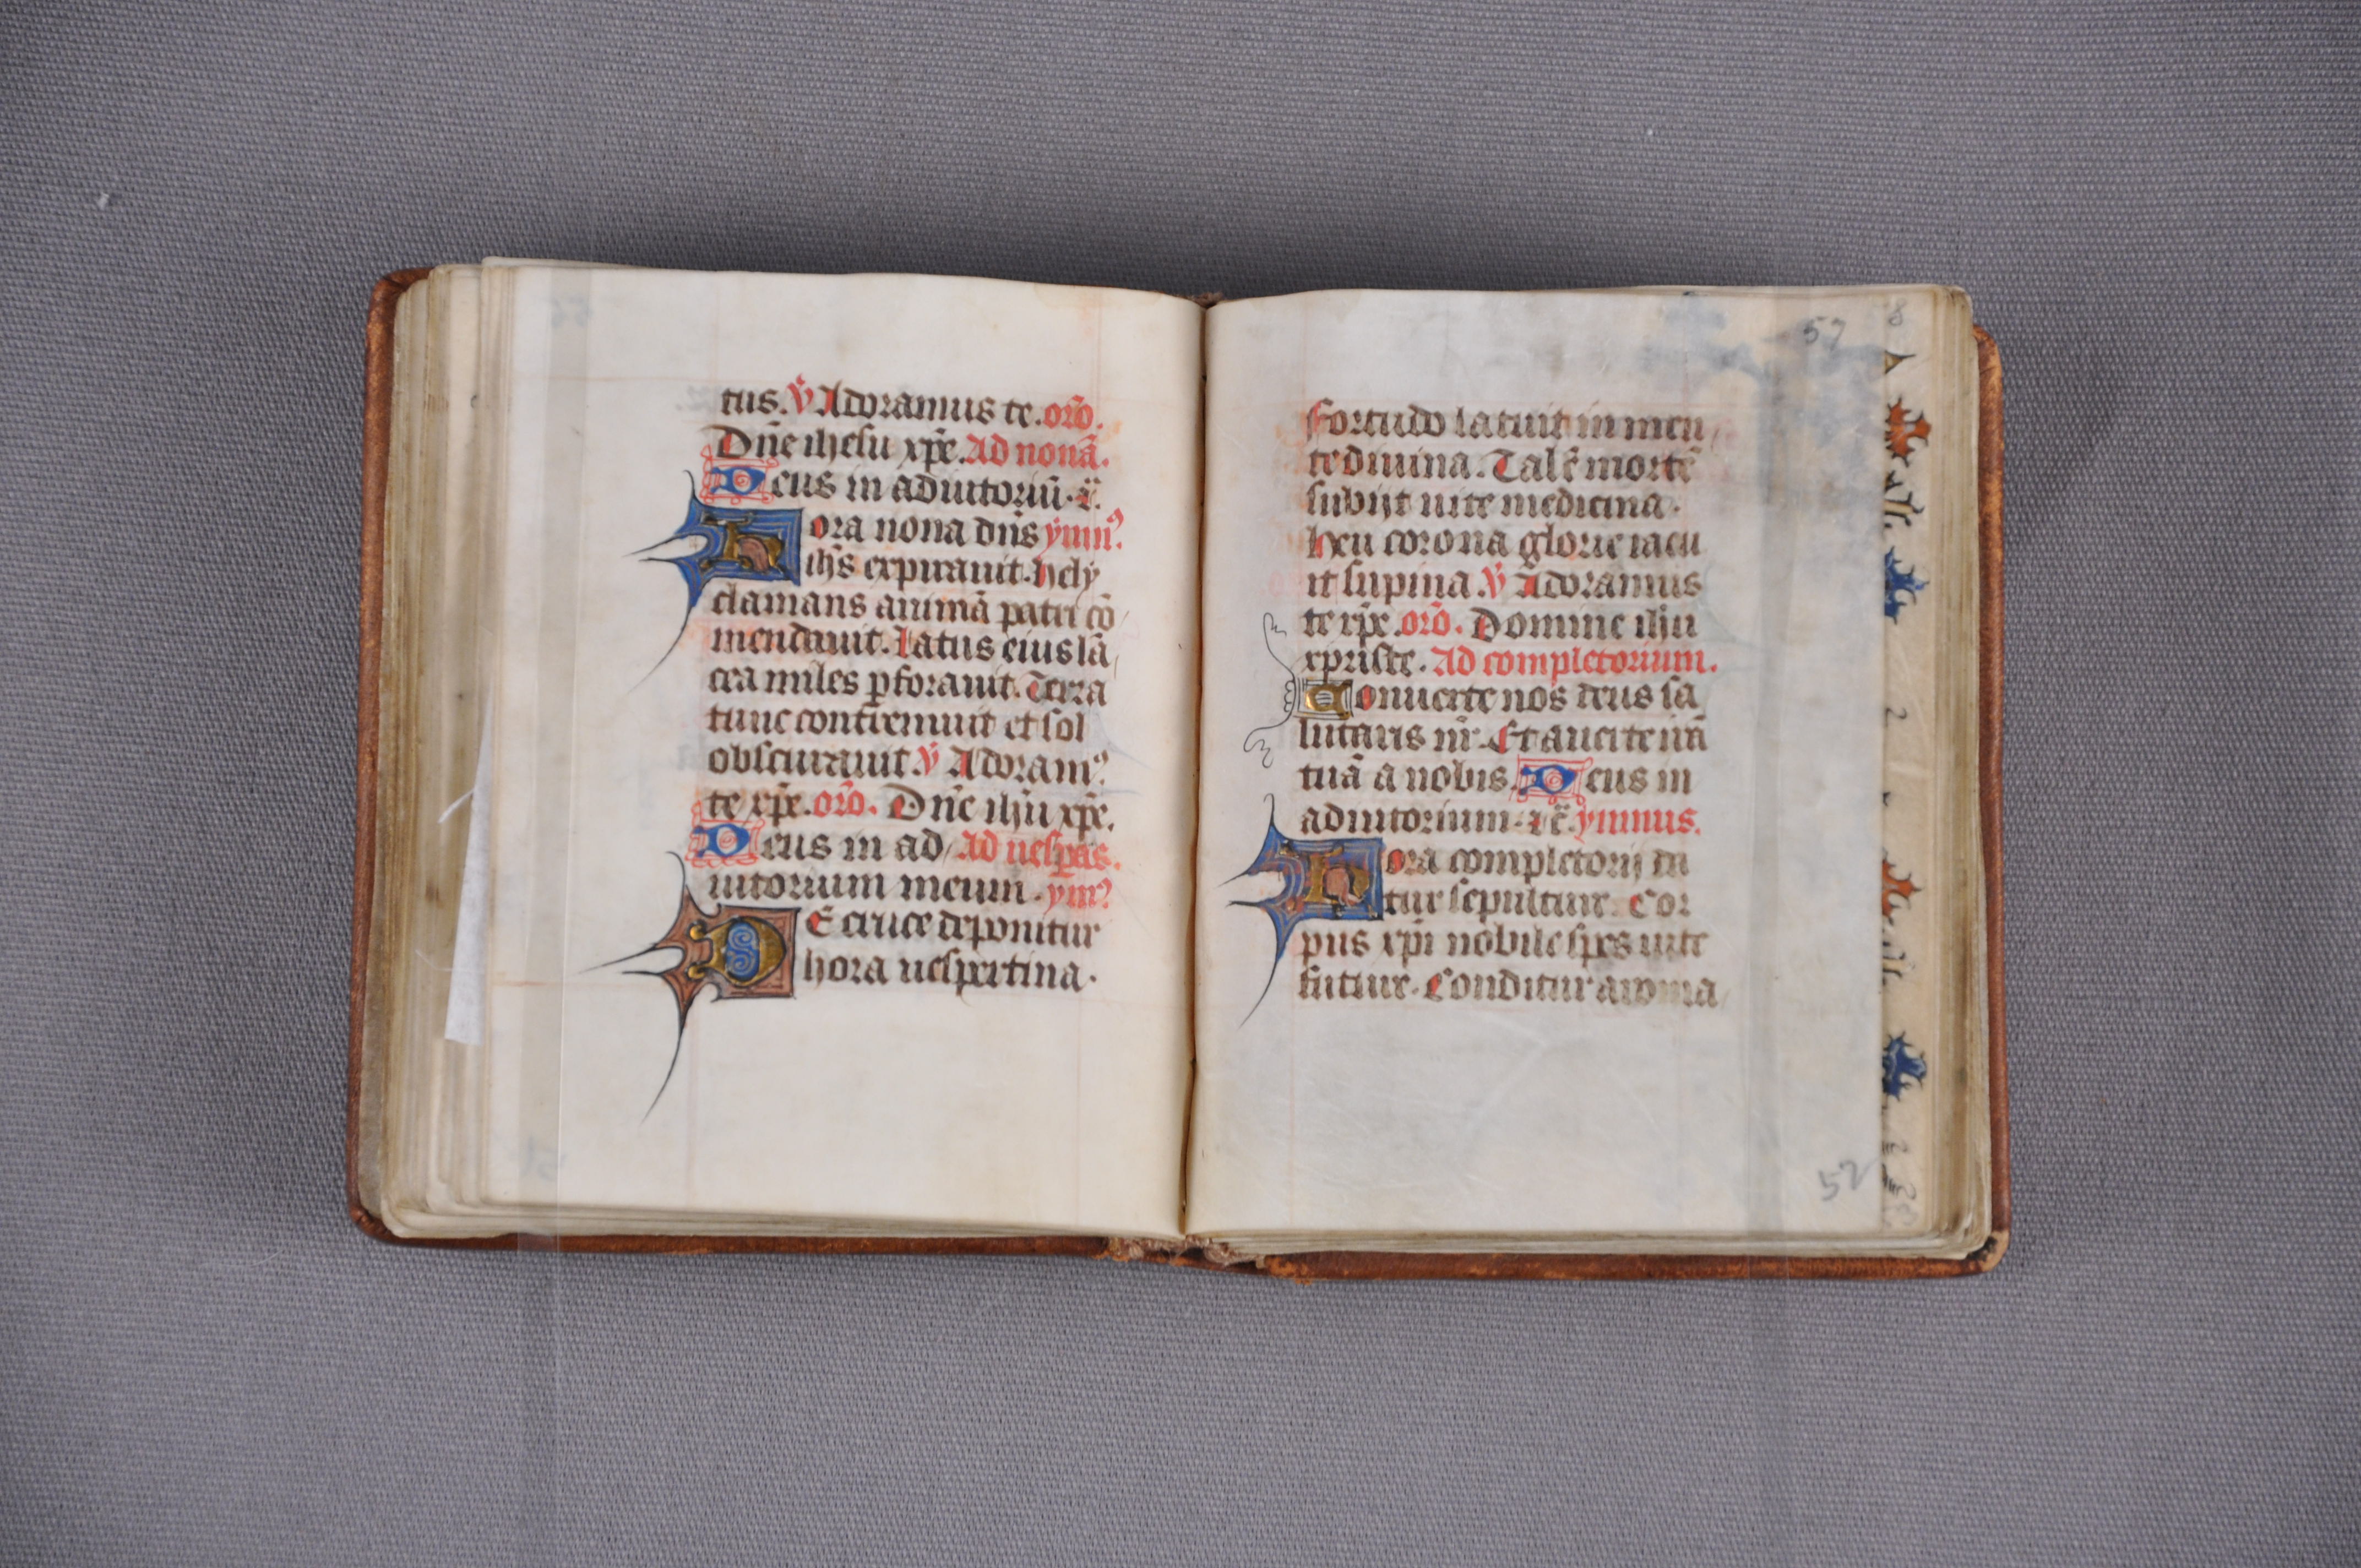 tus. V̄ Adoramus te. or̄o.
Dn̄e ihesu xp̄e. Ad nonā.
Deus in adiutoriū. ⁊c̄.
Hora nona dn̄s ymn⁹
ih̄s expirauit. hely
clamans animā patri cō
mendauit. Latus eius lā
cea miles ꝑforauit. Terra
tunc contremuit et sol
obscurauit. V̄ Adoram⁹
te xp̄e. or̄o. Dn̄e ih̄u xp̄e.
Deus in ad Ad uesꝑas.
iutorium meum. ym⁹
DE cruce deponitur
hora uespertina.
57
8
ffortitudo latuit in men
te diuina. Talē mortē
subijt uite medicina.
heu corona glorie iacu
it supina. V̄ Adoramus
te xp̄e. or̄o. Domine ih̄u
xpriste. Ad completorium.
Conuerte nos deus sa
lutaris nr̄. Et auerte irā
tuā a nobis. Deus in
adiutorium. ⁊c̄. ymnus.
Hora completorij da
tur sepulture. Cor
pus xp̄i nobile spes uite
future. Conditur aroma
52